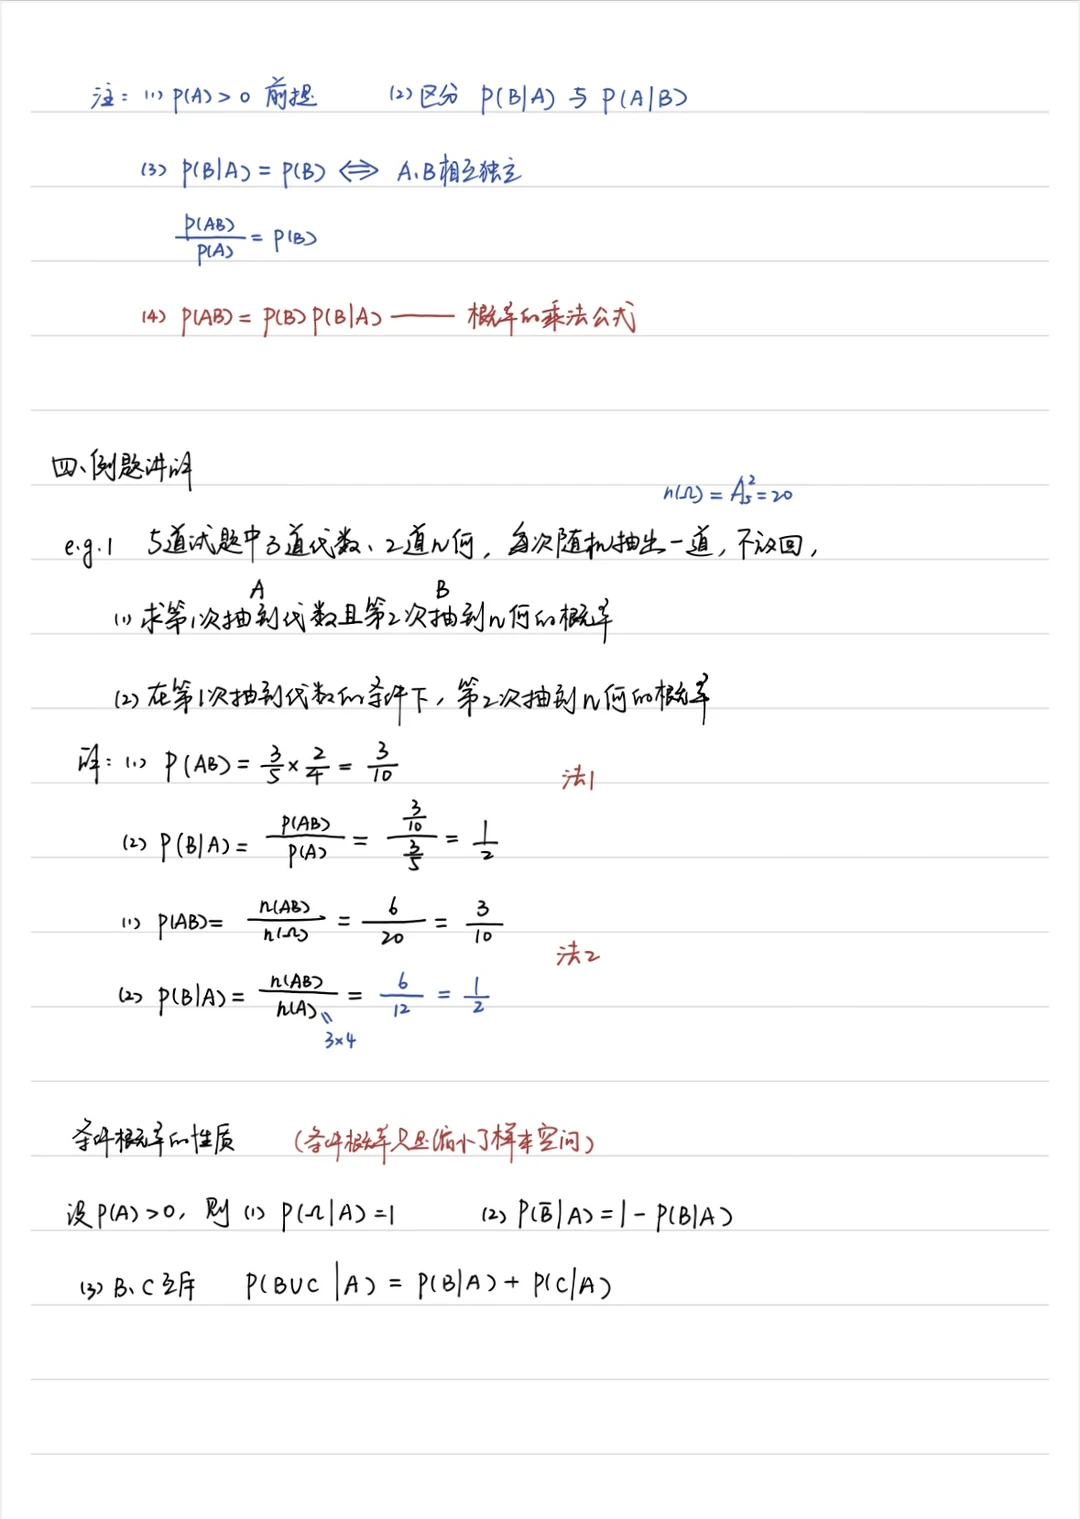 注：(1) P(A)>0 前提 (2) 区分 P(B|A) 与 P(A|B)
(3) P(B|A) = P(B) ⟺ A、B相互独立
P(AB)/P(A) = P(B)
(4) P(AB) = P(B)P(B|A) —— 概率的乘法公式
四、例题讲解
n(Ω) = A₅² = 20
e.g.1 5道试题中3道代数、2道几何，每次随机抽出一道，不放回，
A B
(1) 求第1次抽到代数且第2次抽到几何的概率
(2) 在第1次抽到代数的条件下，第2次抽到几何的概率
解：(1) P(AB) = 3/5 × 2/4 = 3/10
法1
(2) P(B|A) = P(AB)/P(A) = (3/10)/(3/5) = 1/2
(1) P(AB) = n(AB)/n(Ω) = 6/20 = 3/10
法2
(2) P(B|A) = n(AB)/n(A) = 6/12 = 1/2
3×4
条件概率的性质 (条件概率只是缩小了样本空间)
设P(A)>0，则 (1) P(Ω|A) = 1 (2) P(B̄|A) = 1 - P(B|A)
(3) B、C互斥 P(B∪C|A) = P(B|A) + P(C|A)